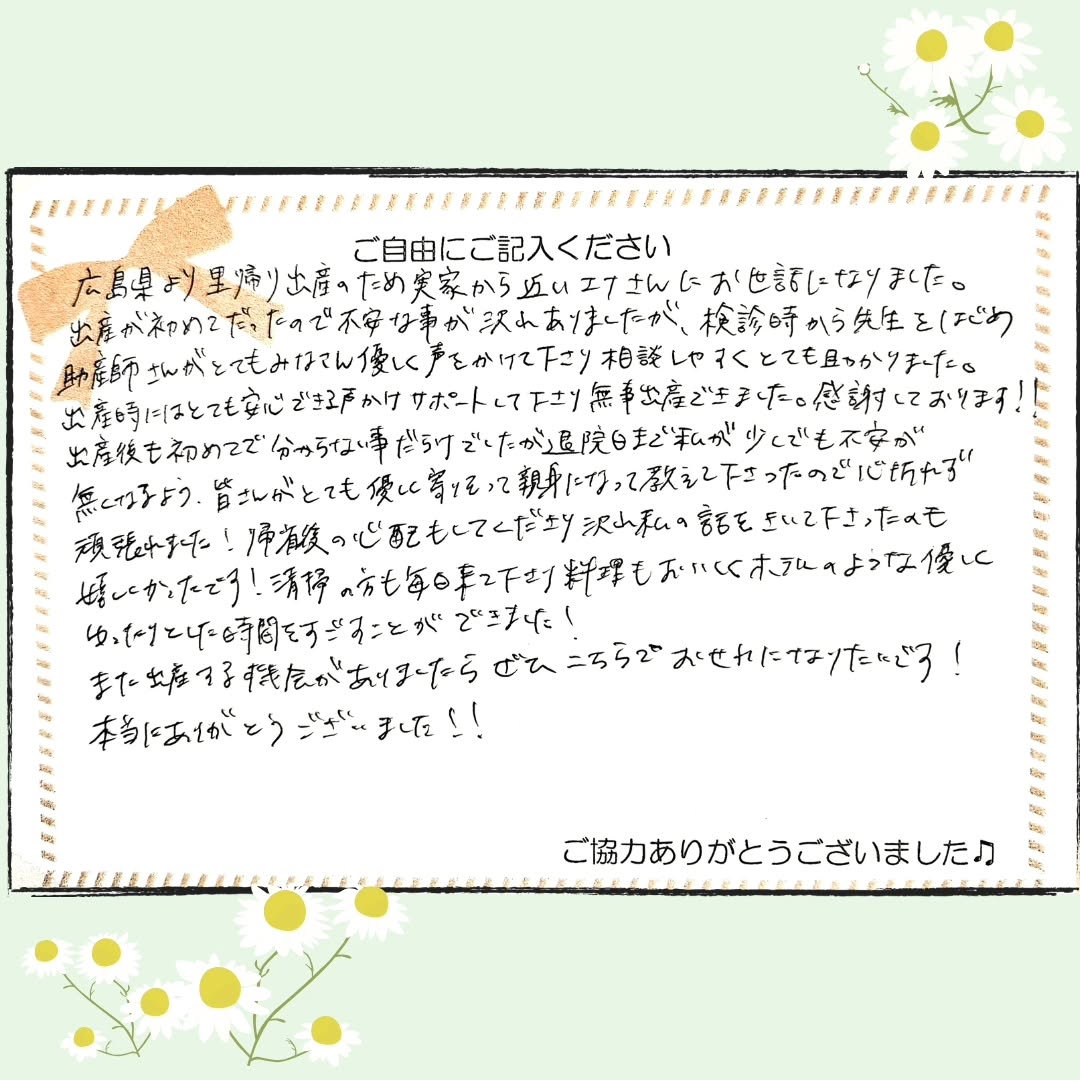 ご自由にご記入ください
広島県より里帰り出産のため実家から近いエナさんにお世話になりました。
出産が初めてだったので不安な事が沢山ありましたが、検診時から先生をはじめ
助産師さんがとてもみなさん優しく声をかけて下さり相談しやすくとても助かりました。
出産時にはとても安心できる声かけサポートして下さり無事出産できました。感謝しております!!
出産後も初めてで分からない事だらけでしたが退院日まで私が少しでも不安が
無くなるよう、皆さんがとても優しく寄りそって親身になって教えて下さったので心折れず
頑張れました!帰省後の心配もしてくださり沢山私の話をきいて下さったのも
嬉しかったです!清掃の方も毎日来て下さり料理もおいしくホテルのような優しく
ゆったりとした時間をすごすことができました!
また出産する機会がありましたらぜひこちらでおせわになりたいです!
本当にありがとうございました!!
ご協力ありがとうございました♫